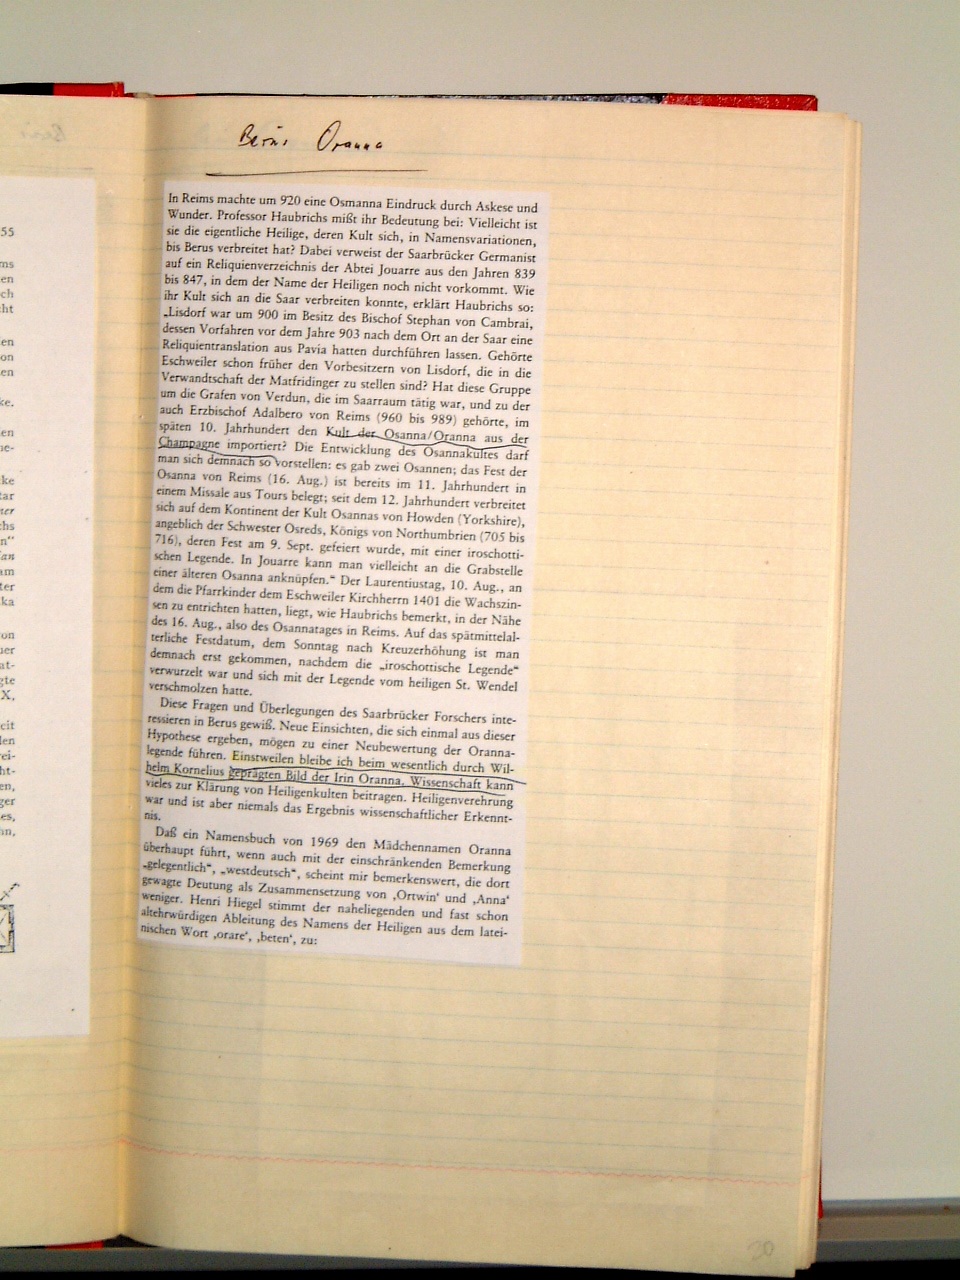 Berus Oranna
In Reims machte um 920 eine Osmanna Eindruck durch Askese und
Wunder. Professor Haubrichs mißt ihr Bedeutung bei: Vielleicht ist
sie die eigentliche Heilige, deren Kult sich, in Namensvariationen,
bis Berus verbreitet hat? Dabei verweist der Saarbrücker Germanist
auf ein Reliquienverzeichnis der Abtei Jouarre aus den Jahren 839
bis 847, in dem der Name der Heiligen noch nicht vorkommt. Wie
ihr Kult sich an die Saar verbreiten konnte, erklärt Haubrichs so:
„Lisdorf war um 900 im Besitz des Bischof Stephan von Cambrai,
dessen Vorfahren vor dem Jahre 903 nach dem Ort an der Saar eine
Reliquientranslation aus Pavia hatten durchführen lassen. Gehörte
Eschweiler schon früher den Vorbesitzern von Lisdorf, die in die
Verwandtschaft der Matfridinger zu stellen sind? Hat diese Gruppe
um die Grafen von Verdun, die im Saarraum tätig war, und zu der
auch Erzbischof Adalbero von Reims (960 bis 989) gehörte, im
späten 10. Jahrhundert den Kult der Osanna/Oranna aus der
Champagne importiert? Die Entwicklung des Osannakultes darf
man sich demnach so vorstellen: es gab zwei Osannen; das Fest der
Osanna von Reims (16. Aug.) ist bereits im 11. Jahrhundert in
einem Missale aus Tours belegt; seit dem 12. Jahrhundert verbreitet
sich auf dem Kontinent der Kult Osannas von Howden (Yorkshire),
angeblich der Schwester Osreds, Königs von Northumbrien (705 bis
716), deren Fest am 9. Sept. gefeiert wurde, mit einer iroschotti-
schen Legende. In Jouarre kann man vielleicht an die Grabstelle
einer älteren Osanna anknüpfen.“ Der Laurentiustag, 10. Aug., an
dem die Pfarrkinder dem Eschweiler Kirchherrn 1401 die Wachszin-
sen zu entrichten hatten, liegt, wie Haubrichs bemerkt, in der Nähe
des 16. Aug., also des Osannatages in Reims. Auf das spätmittelal-
terliche Festdatum, dem Sonntag nach Kreuzerhöhung ist man
demnach erst gekommen, nachdem die „iroschottische Legende“
verwurzelt war und sich mit der Legende vom heiligen St. Wendel
verschmolzen hatte.
Diese Fragen und Überlegungen des Saarbrücker Forschers inte-
ressieren in Berus gewiß. Neue Einsichten, die sich einmal aus dieser
Hypothese ergeben, mögen zu einer Neubewertung der Oranna-
legende führen. Einstweilen bleibe ich beim wesentlich durch Wil-
helm Kornelius geprägten Bild der Irin Oranna. Wissenschaft kann
vieles zur Klärung von Heiligenkulten beitragen. Heiligenverehrung
war und ist aber niemals das Ergebnis wissenschaftlicher Erkennt-
nis.
Daß ein Namensbuch von 1969 den Mädchennamen Oranna
überhaupt führt, wenn auch mit der einschränkenden Bemerkung
„gelegentlich“, „westdeutsch“, scheint mir bemerkenswert, die dort
gewagte Deutung als Zusammensetzung von ‚Ortwin‘ und ‚Anna‘
weniger. Henri Hiegel stimmt der naheliegenden und fast schon
altehrwürdigen Ableitung des Namens der Heiligen aus dem latei-
nischen Wort ‚orare‘, ‚beten‘, zu:
30